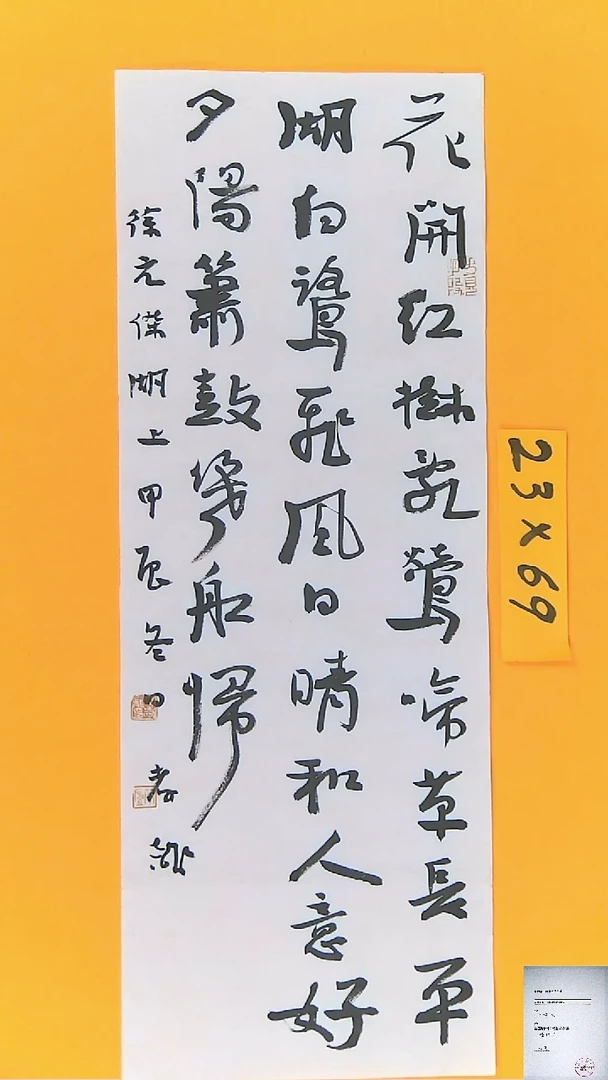 花開紅樹亂鶯啼草長平
湖白鷺飛風日晴和人意好
夕陽簫鼓幾船歸
徐元傑湖上甲辰冬日
23×69